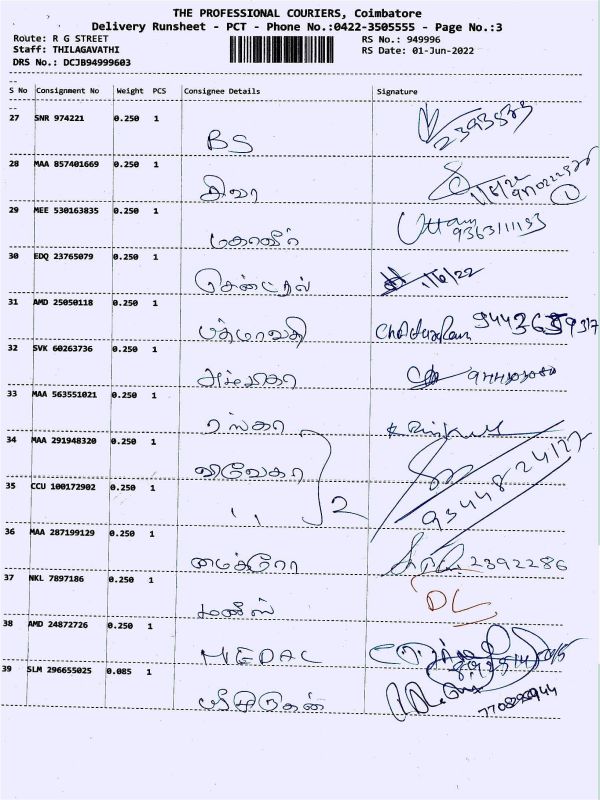 THE PROFESSIONAL COURIERS, Coimbatore
Delivery Runsheet - PCT - Phone No.:0422-3505555 - Page No.:3
Route: R G STREET RS No.: 949996
Staff: THILAGAVATHI RS Date: 01-Jun-2022
DRS No.: DCJB94999603
S No Consignment No Weight PCS Consignee Details Signature
27 SNR 974221 0.250 1 BS 2393533
28 MAA 857401669 0.250 1 சிவா 1/6/22
29 MEE 530163835 0.250 1 மகாவீர் Uttam 9363111133
30 EDQ 23765079 0.250 1 சென்ட்ரல் 1/6/22
31 AMD 25050118 0.250 1 பத்மாவதி
32 SVK 60263736 0.250 1 அம்பிகா
33 MAA 563551021 0.250 1 ரஸ்கா
34 MAA 291948320 0.250 1 விவேகா 9344824127
35 CCU 100172902 0.250 1 ,, 2
36 MAA 287199129 0.250 1 மைக்ரோ 2392286
37 NKL 7897186 0.250 1 மனீஸ் DL
38 AMD 24872726 0.250 1 MEDAL
39 SLM 296655025 0.085 1 ஸ்ரீமுருகன்